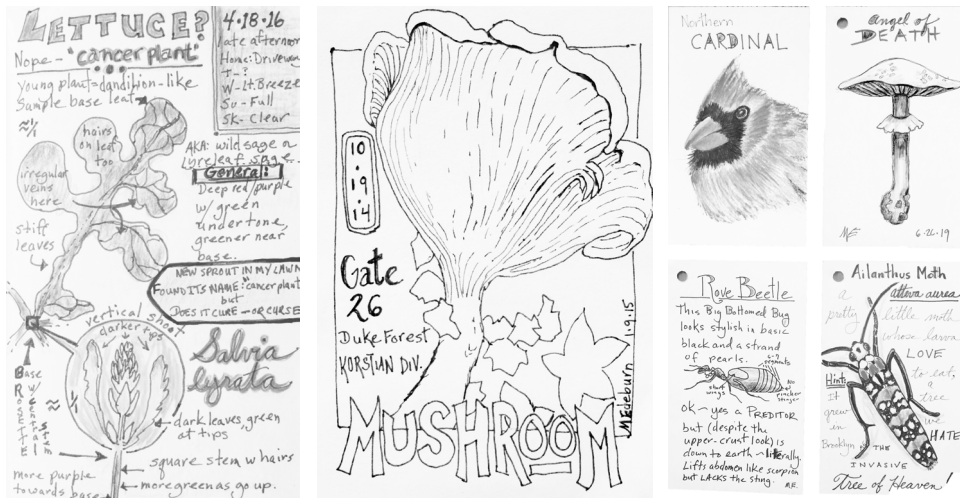 LETTUCE?
Nope - "cancer plant"
young plant = dandilion-like
Sample base leaf
≈1/1
hairs
on leaf
too
irregular
veins
here
stiff
leaves
4·18·16
late afternoon
Home: Driveway
T - ?
W - Lt. Breeze
Su - Full
Sk - Clear
AKA: wild sage or
Lyreleaf sage.
General:
Deep red/purple
w/ green
undertone,
greener near
base.
NEW SPROUT IN MY LAWN
FOUND ITS NAME: "cancer plant"
but
DOES IT CURE - OR CURSE
vertical shoot
darker tips
Salvia
lyrata
Base
Rosette
≈ 1/1
dark leaves, green
at tips
square stem w hairs
more green as go up.
more purple
towards base
10
·
19
·
14
Gate
26
Duke Forest
KORSTIAN DIV.
MUSHROOM
MEdeburn 1.9.15
Northern
CARDINAL
angel of
DEATH
ME
6·26·19
Rove Beetle
This Big Bottomed Bug
looks stylish in basic
black and a strand
of pearls.
segments
short
wings
No
pincher
stinger
ok - yes a PREDITOR
but (despite the
upper-crust look) is
down to earth - literally.
Lifts abdomen like scorpion
but LACKS the sting.
M.E.
Ailanthus Moth
a atteva aurea
pretty little moth
whose larva
LOVE
to eat,
a
tree
we
HATE
Hint:
It
grew
in
Brooklyn
THE
INVASIVE
Tree of Heaven!